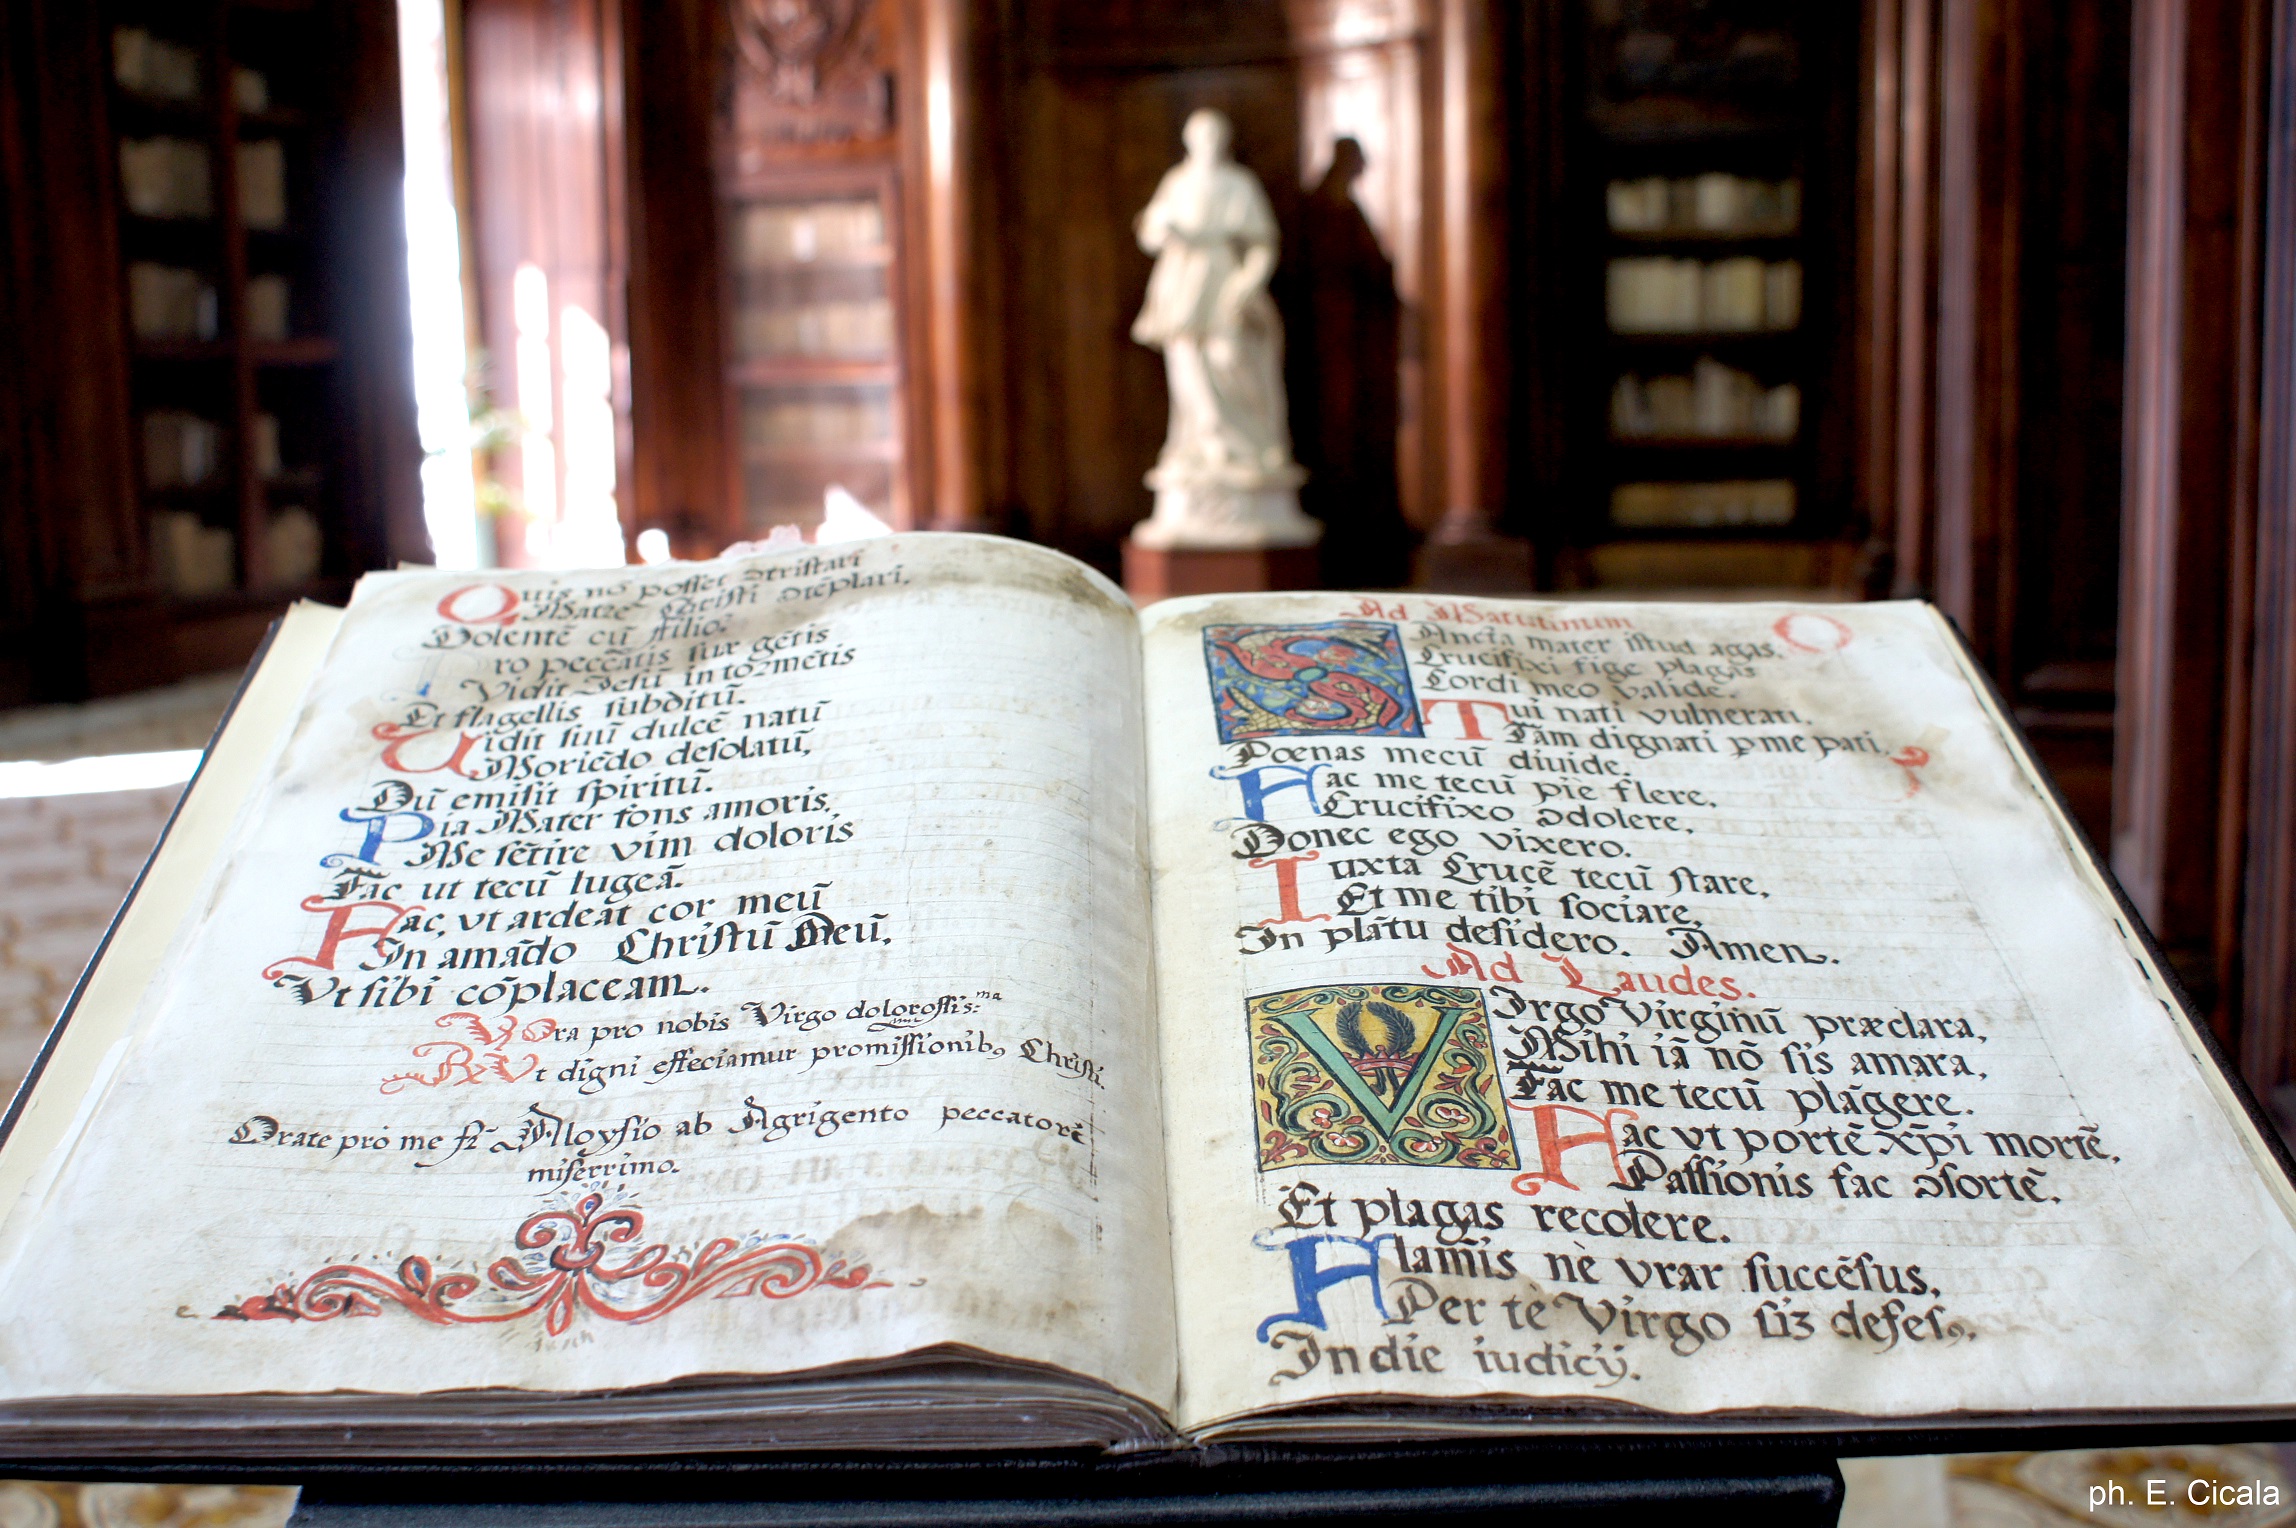 Quis nō posset ↄtristari
Matrē Christi ↄtēplari,
Dolentē cū filio?
Pro peccātis suæ gētis
Vidit Jesū in toꝛmētis
Et flagellis subditū.
Uidit suū dulcē natū
Moriēdo desolatū,
Dū emisit spiritū.
Pia Mater fons amoris,
Me sētire vim doloris
Fac ut tecū lugeā.
Fac, vt ardeat cor meū
In amādo Christū Deū,
Vt sibi cōplaceam.
℣ Ora pro nobis Virgo dolorosissː ma
℟ Vt digni efficiamur promissionibꝰ Christi.
Orate pro me fr̄ Aloysio ab Agrigento peccatorē
miserrimo.
Ad Matutinum
Sancta mater istud agas,
Crucifixi fige plagas
Cordi meo valide.
Tui nati vulnerati,
Tām dignati ꝓ me pati,
Pœnas mecū diuide.
Fac me tecū piè flere,
Crucifixo ↄdolere,
Donec ego vixero.
Iuxta Crucē tecū stare,
Et me tibi sociare,
In plātu desidero. Amen.
Ad Laudes.
VIrgo Virginū præclara,
Mihi iā nō sis amara,
Fac me tecū plāgere.
Fac vt portē xp̄i mortē,
Passionis fac ↄsortē,
Et plagas recolere.
Flam̄is nè vrar succēsus,
Per tè Virgo siꝫ defesꝰ,
In die iudicij.
ph. E. Cicala